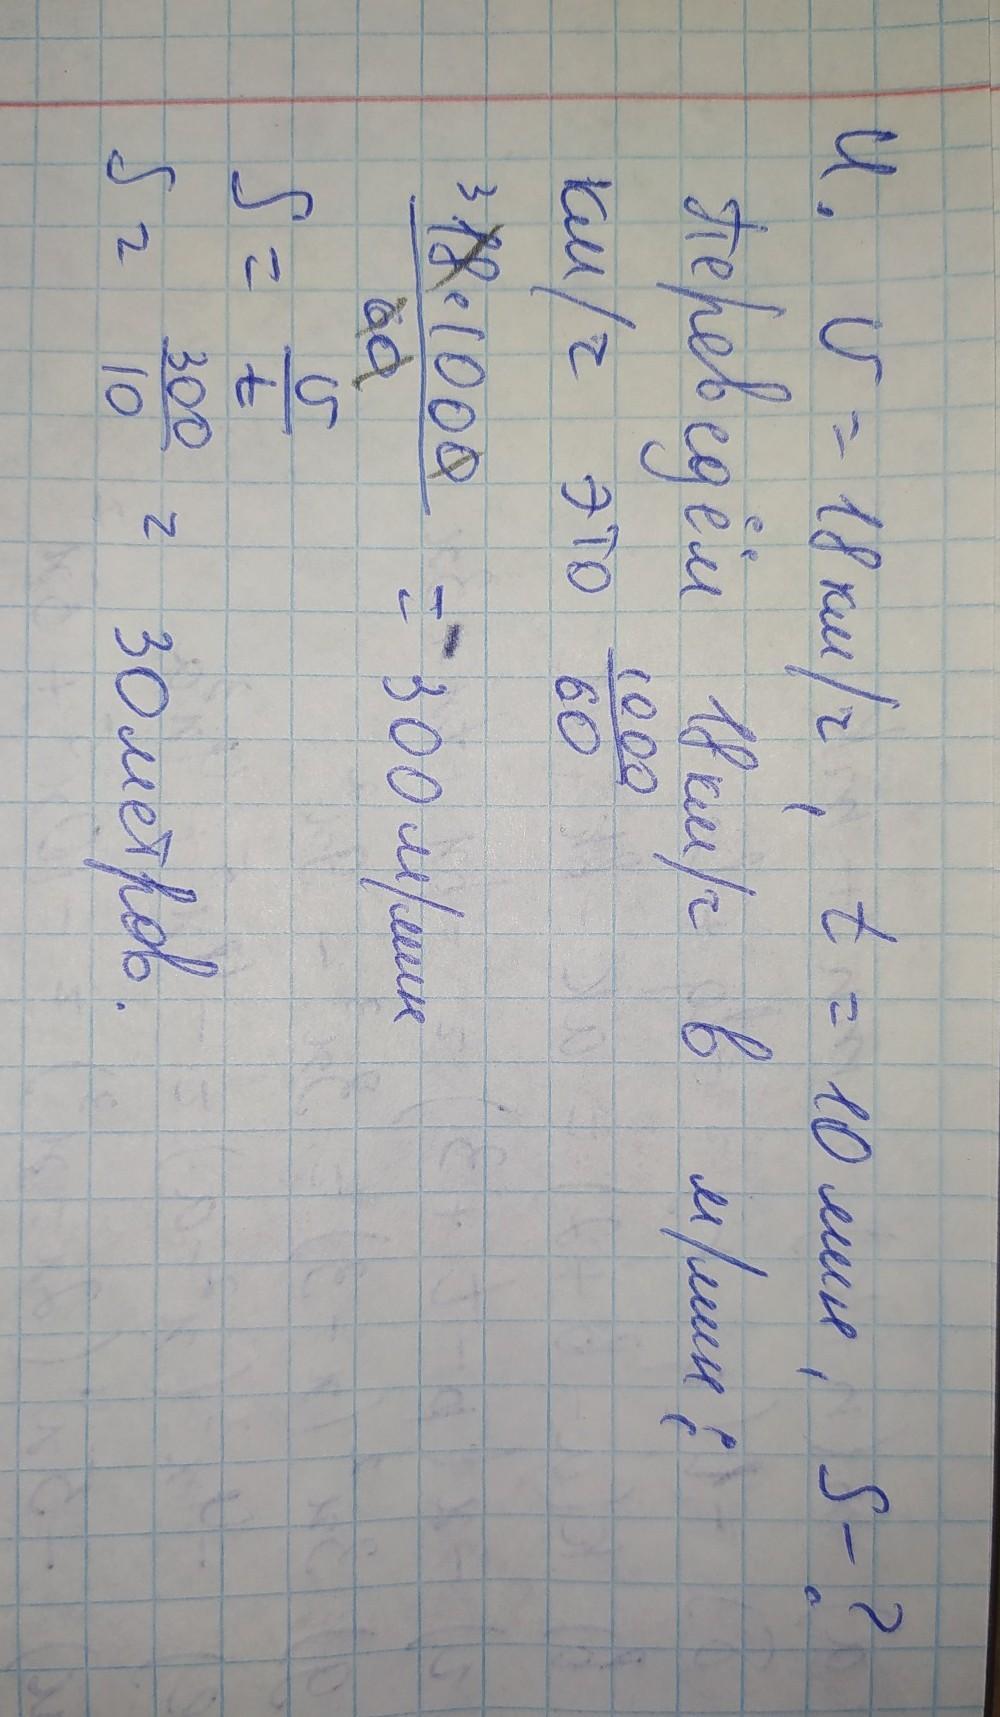 4. υ = 18 км/ч, t = 10 мин, S - ?
Переведём 18 км/ч в м/мин:
км/ч это 1000/60
3 18·1000/60 = 300 м/мин
S = υ/t
S = 300/10 = 30 метров.